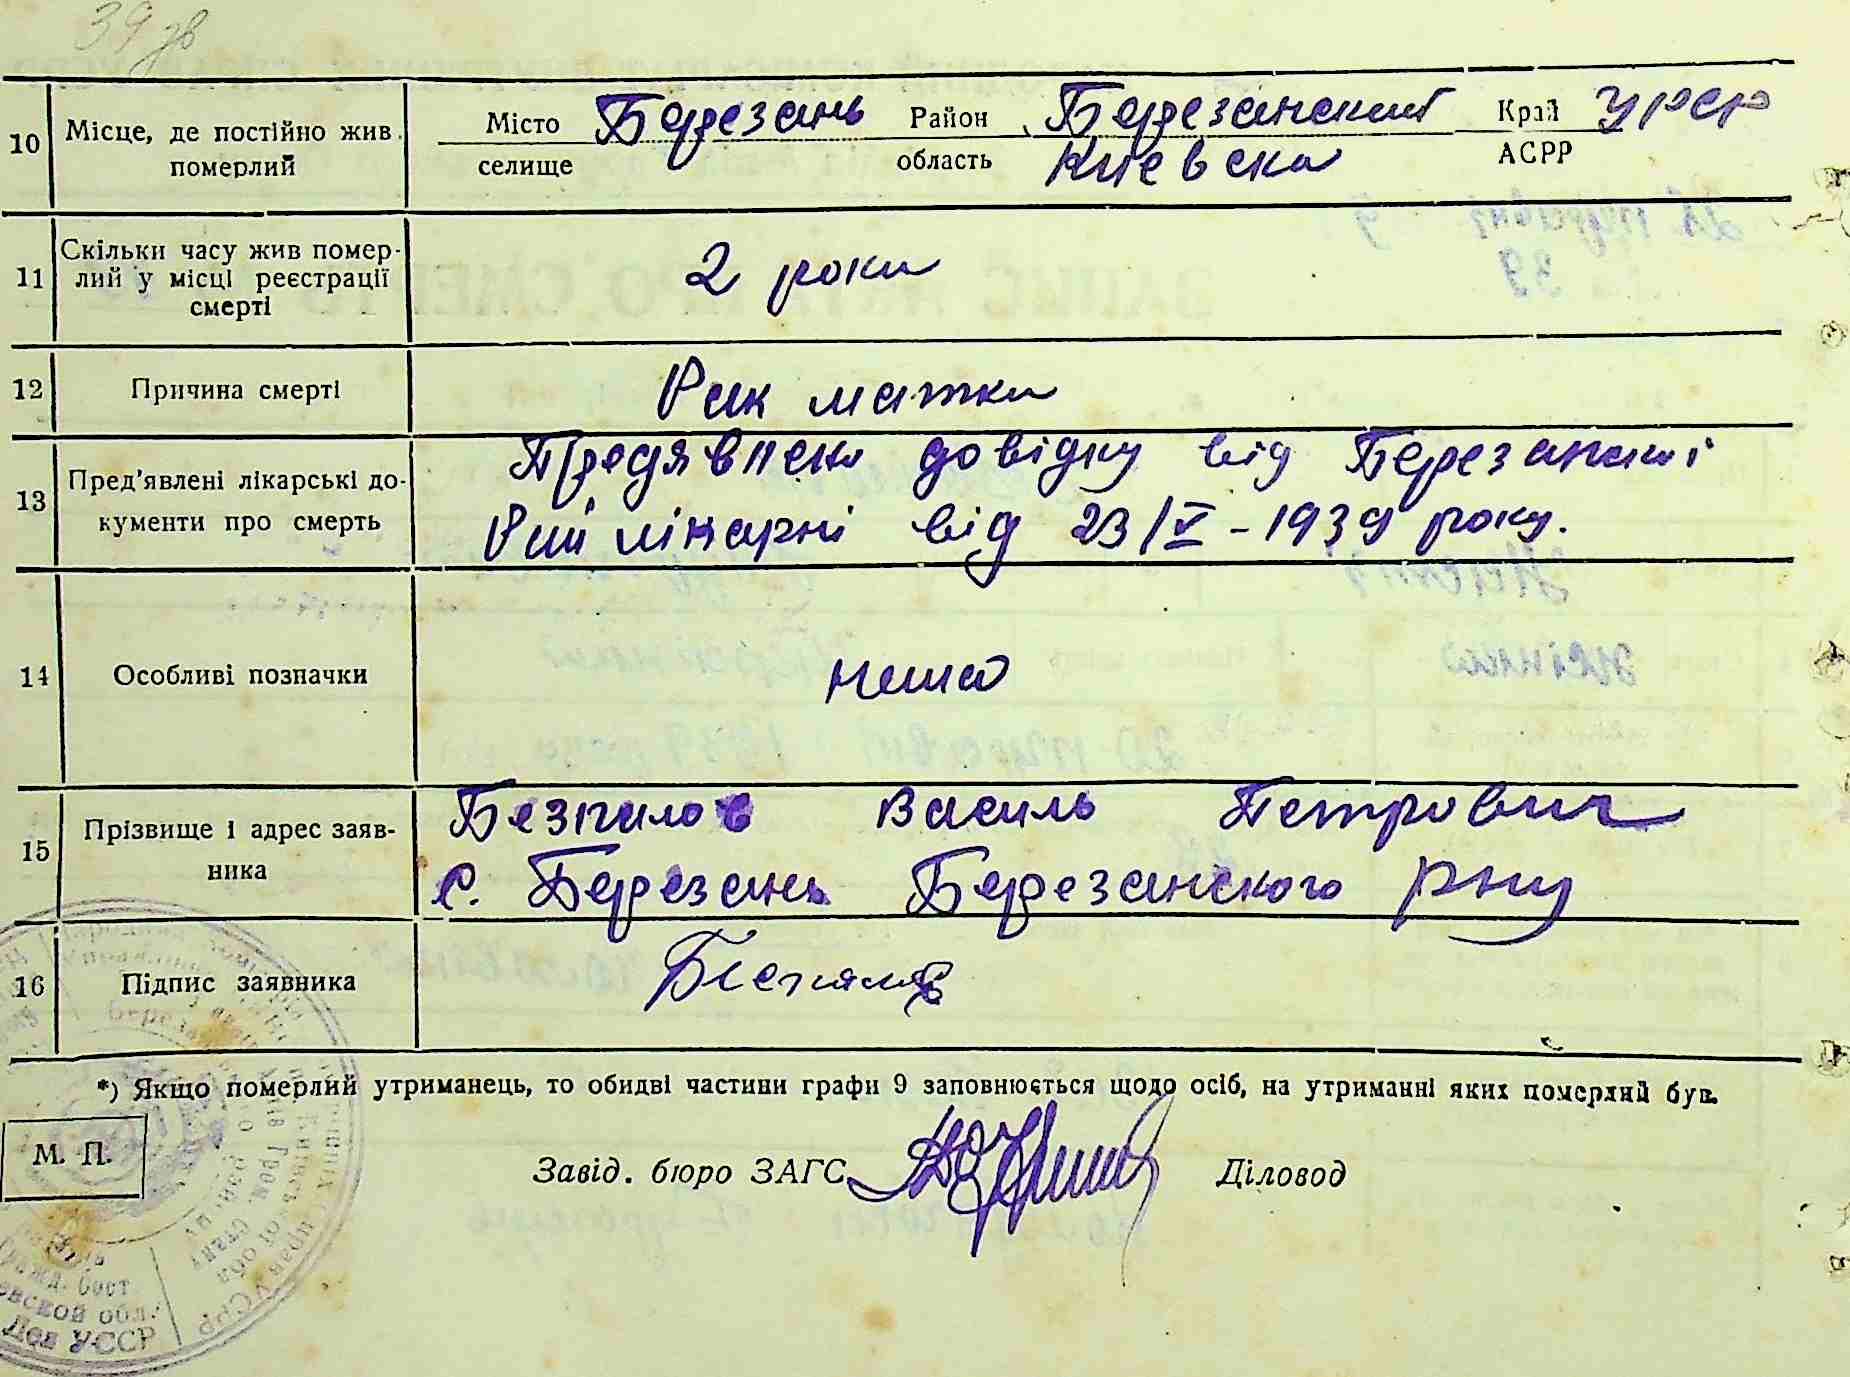 39 зв
10 Місце, де постійно жив померлий
Місто Березань Район Березанский Край УРСР
селище область Киевска АСРР
11 Скільки часу жив померлий у місці реєстрації смерті
2 роки
12 Причина смерті
Рак матки
13 Пред'явлені лікарські документи про смерть
довідку від
лікарні від 23/V-1939 року.
14 Особливі позначки
нема
15 Прізвище і адрес заявника
Василь Петрович
с. Березань Березанского рну
16 Підпис заявника
*) Якщо померлий утриманець, то обидві частини графи 9 заповнюється щодо осіб, на утриманні яких померлий був.
М. П.
Завід. бюро ЗАГС Діловод